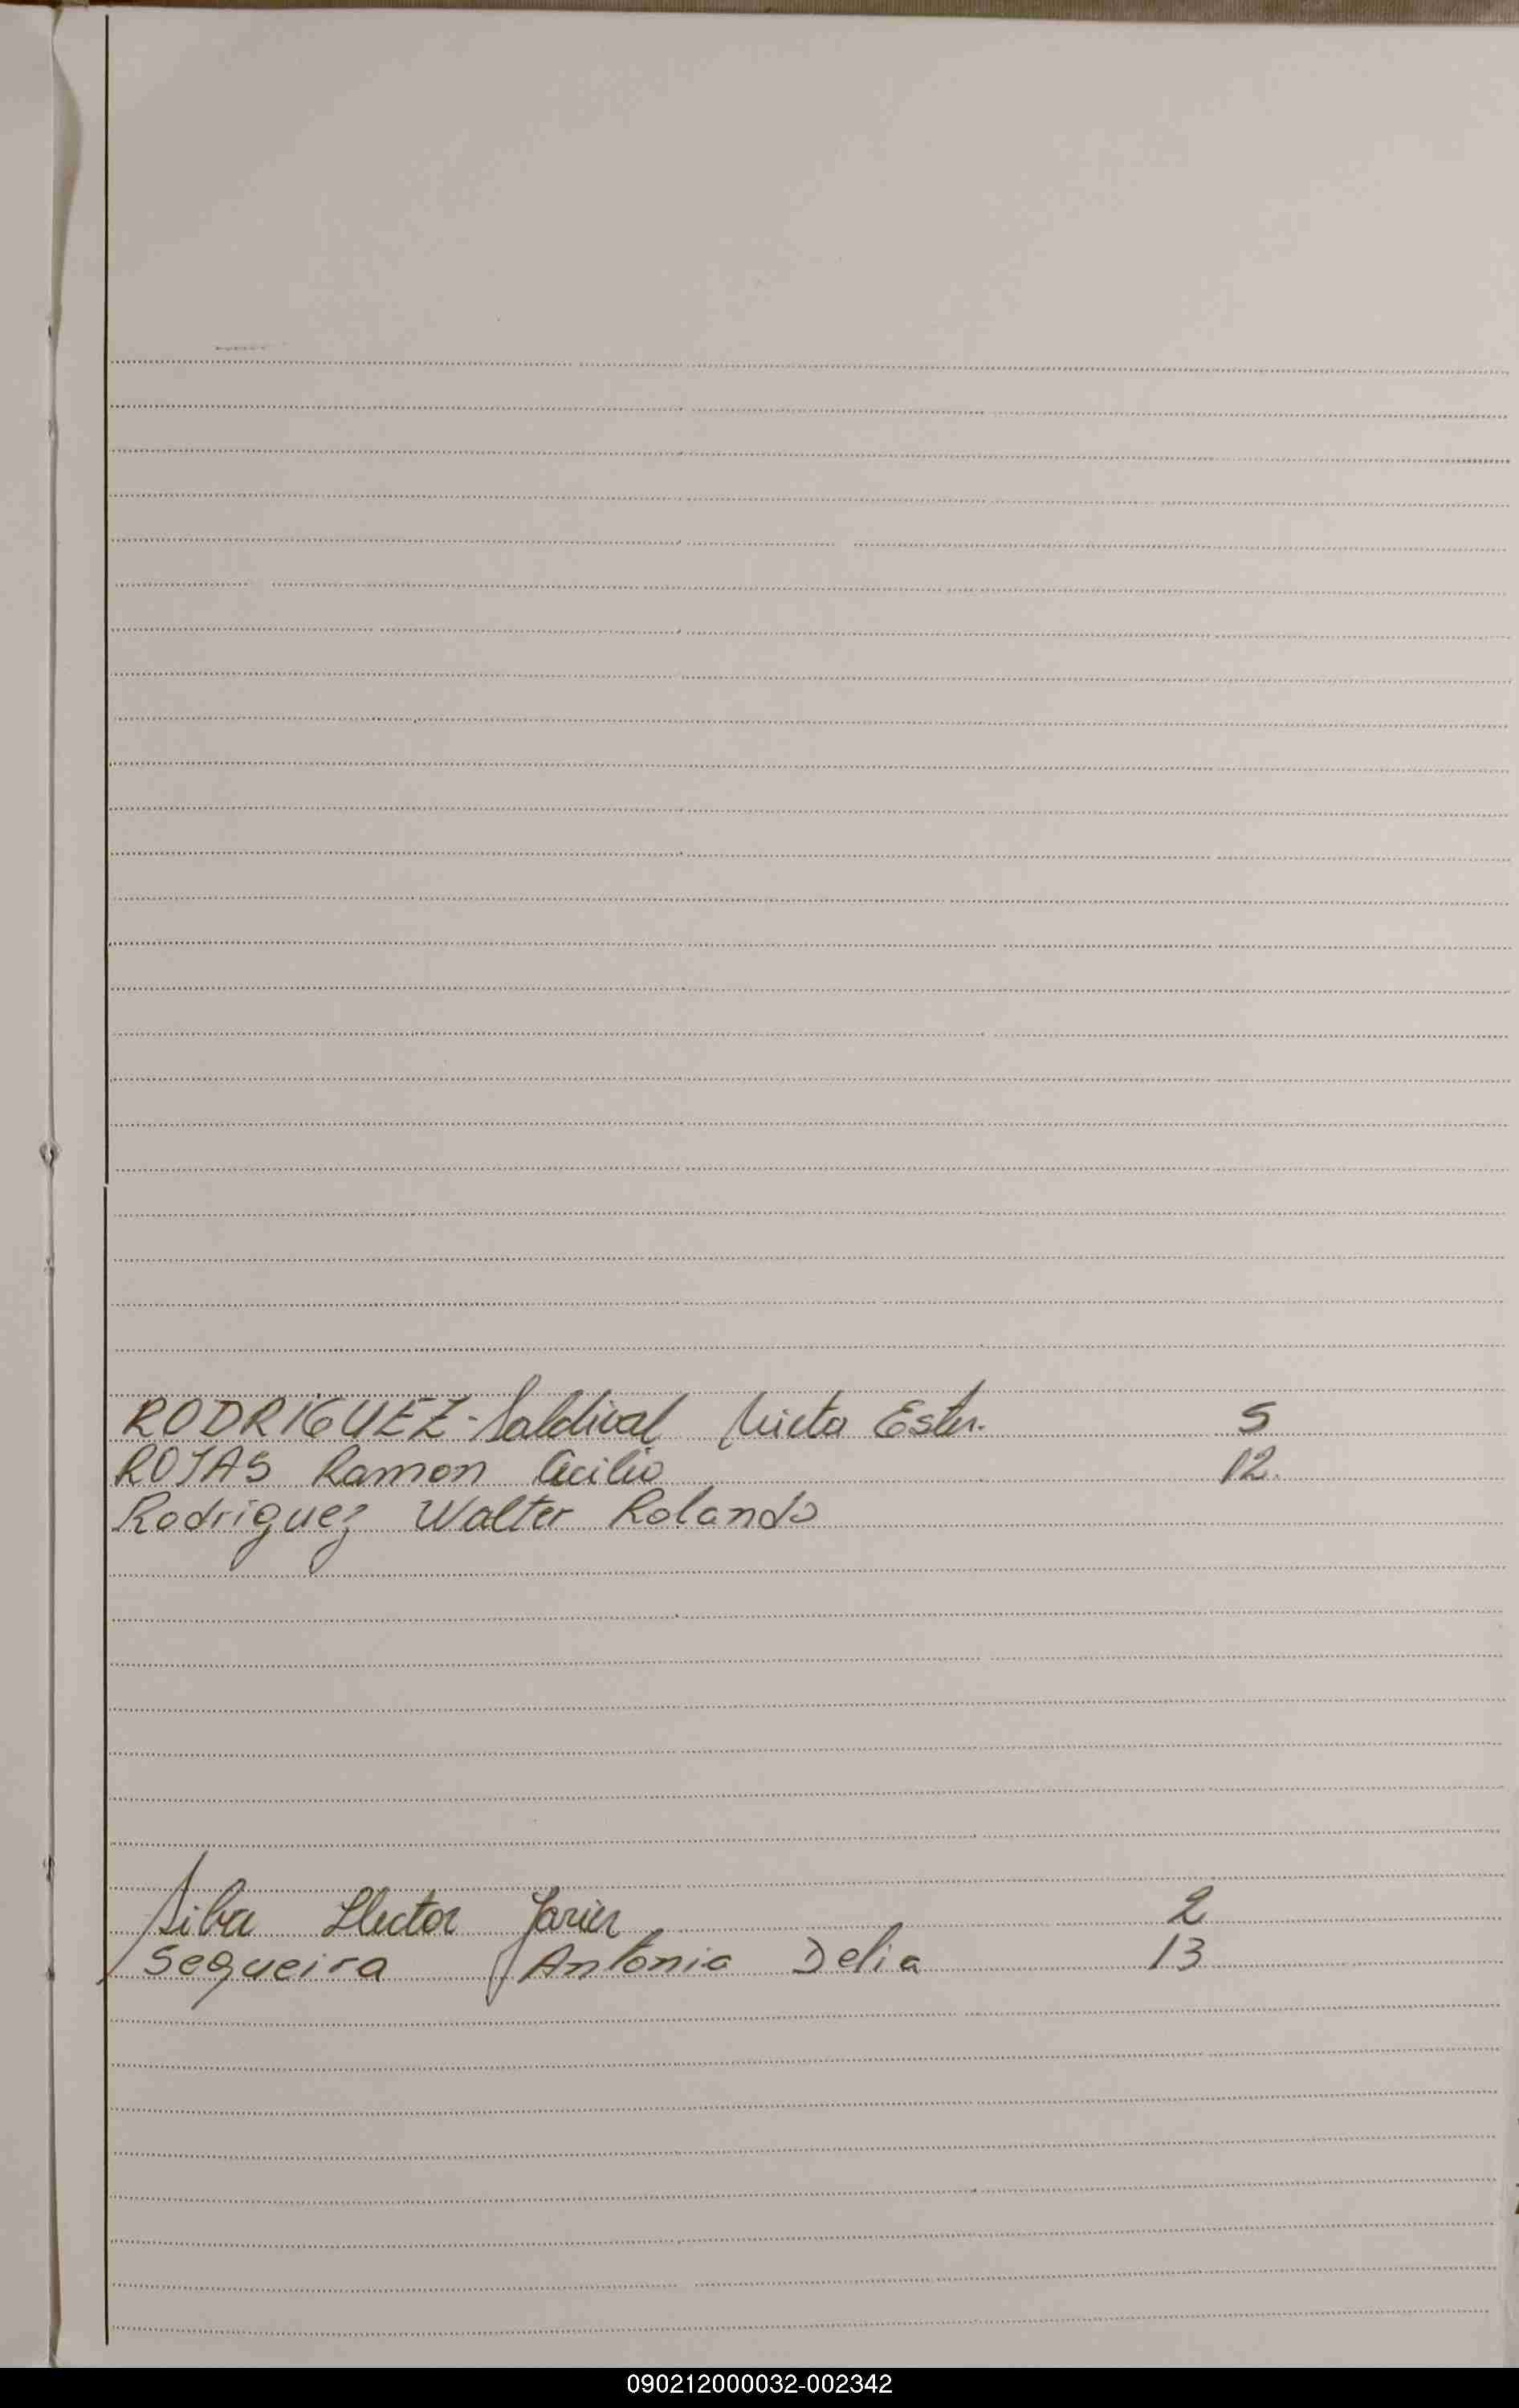 RODRIGUEZ-Saldival Mirta Ester. 5
ROJAS Ramon Cecilio 12.
Rodriguez Walter Rolando
Silva Hector Javier 2
Sequeira Antonia Delia 13
090212000032-002342